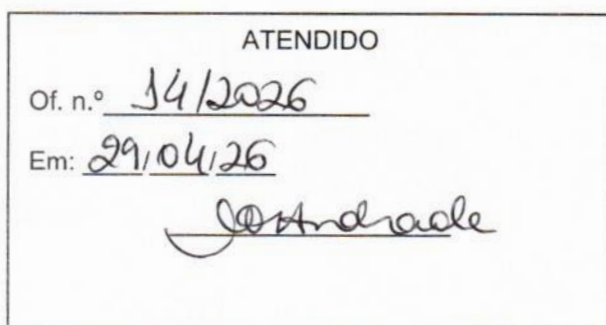 ATENDIDO
Of. n.º 14/2026
Em: 29/04/26
Andrade